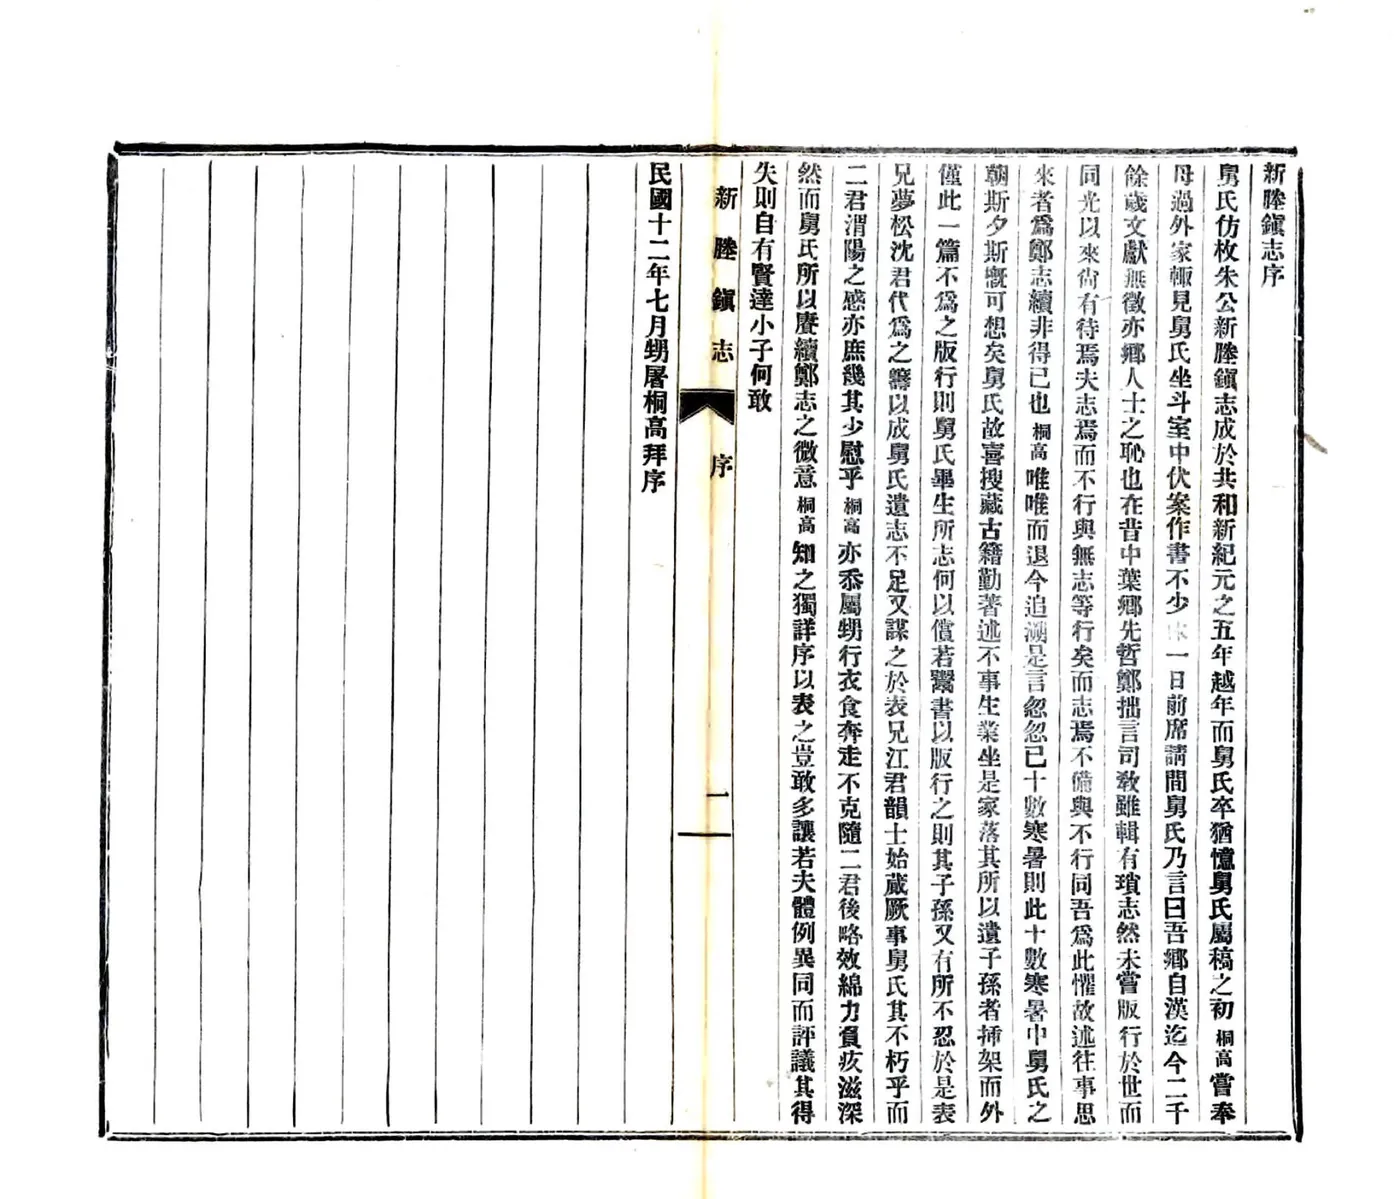 新塍鎭志序
舅氏仿枚朱公新塍鎭志成於共和新紀元之五年越年而舅氏卒猶憶舅氏屬稿之初桐高嘗奉
母過外家輙見舅氏坐斗室中伏案作書不少休一日前席請間舅氏乃言曰吾鄕自漢迄今二千
餘歲文獻無徵亦鄕人士之恥也在昔中葉鄕先哲鄭拙言司敎雖輯有瑣志然未嘗版行於世而
同光以來尙有待焉夫志焉而不行與無志等行矣而志焉不備與不行同吾爲此懼故述往事思
來者爲鄭志續非得已也桐高唯唯而退今追溯是言忽忽已十數寒暑則此十數寒暑中舅氏之
朝斯夕斯槪可想矣舅氏故喜搜藏古籍勤著述不事生業坐是家落其所以遺子孫者揷架而外
僅此一篇不爲之版行則舅氏畢生所志何以償若鬻書以版行之則其子孫又有所不忍於是表
兄夢松沈君代爲之籌以成舅氏遺志不足又謀之於表兄江君韻士始蕆厥事舅氏其不朽乎而
二君渭陽之感亦庶幾其少慰乎桐高亦忝屬甥行衣食奔走不克隨二君後略效綿力負疚滋深
然而舅氏所以賡續鄭志之微意桐高知之獨詳序以表之豈敢多讓若夫體例異同而評議其得
失則自有賢達小子何敢
新塍鎭志 序 一
民國十二年七月甥屠桐高拜序